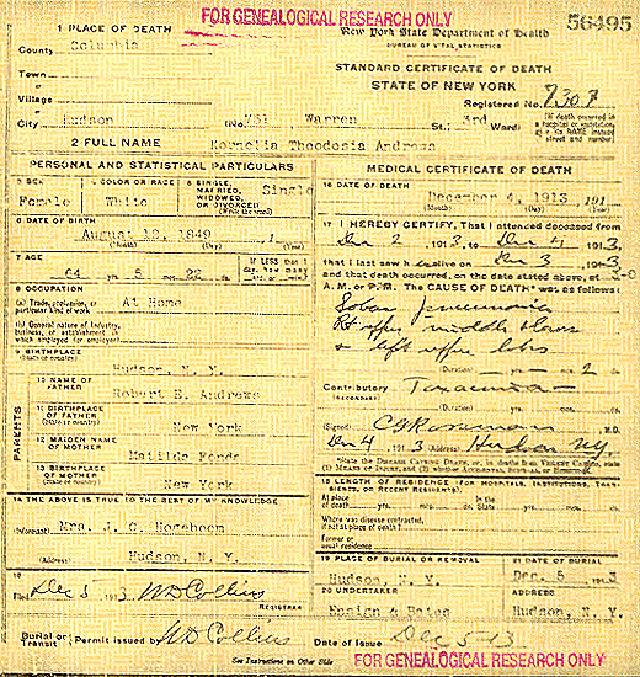 FOR GENEALOGICAL RESEARCH ONLY
56495
1 PLACE OF DEATH
New York State Department of Health
BUREAU OF VITAL STATISTICS
County Columbia
STANDARD CERTIFICATE OF DEATH
Town
STATE OF NEW YORK
Village
Registered No.
City Hudson (No. 751 Warren St.; 3rd Ward)
2 FULL NAME Theodosia Andrews
PERSONAL AND STATISTICAL PARTICULARS
MEDICAL CERTIFICATE OF DEATH
3 SEX Female
4 COLOR OR RACE White
5 SINGLE, MARRIED, WIDOWED, OR DIVORCED Single
16 DATE OF DEATH
December 4, 1913 191
(Month) (Day) (Year)
6 DATE OF BIRTH
August 12, 1849
(Month) (Day) (Year)
17 I HEREBY CERTIFY, That I attended deceased from
Dec 2 1913, to Dec 4 1913,
that I last saw h alive on Dec 3 1913,
and that death occurred, on the date stated above, at
7 AGE
64 yrs. 22
IF LESS than
A. M. or P. M. The CAUSE OF DEATH was as follows:
Lobar pneumonia
Rt upper middle
& left upper lobes
8 OCCUPATION
(a) Trade, profession, or particular kind of work At Home
(b) General nature of industry, business, or establishment in which employed (or employer)
(Duration) yrs. mos. 2
9 BIRTHPLACE
(State or country)
Hudson, N. Y.
Contributory
(SECONDARY)
(Duration)
PARENTS
10 NAME OF FATHER
Robert E. Andrews
11 BIRTHPLACE OF FATHER
(State or country)
New York
(Signed) M.D.
Dec 4 1913 (Address) Hudson NY
12 MAIDEN NAME OF MOTHER
Matilda
13 BIRTHPLACE OF MOTHER
(State or country)
New York
18 LENGTH OF RESIDENCE (FOR HOSPITALS, INSTITUTIONS, TRANSIENTS, OR RECENT RESIDENTS).
At place of death yrs. mos. ds. In the State yrs. mos. ds.
Where was disease contracted, if not at place of death?
Former or usual residence
14 THE ABOVE IS TRUE TO THE BEST OF MY KNOWLEDGE
(Informant) Mrs. J. C. Hogeboom
(Address) Hudson, N. Y.
19 PLACE OF BURIAL OR REMOVAL
Hudson, N. Y.
DATE OF BURIAL
Dec. 6 1913
15
Filed Dec 5 1913 WD Collins
REGISTRAR
20 UNDERTAKER
ADDRESS
Hudson, N. Y.
Burial or Transit Permit issued by WD Collins
Date of Issue Dec 5-13
See Instructions on Other Side
FOR GENEALOGICAL RESEARCH ONLY